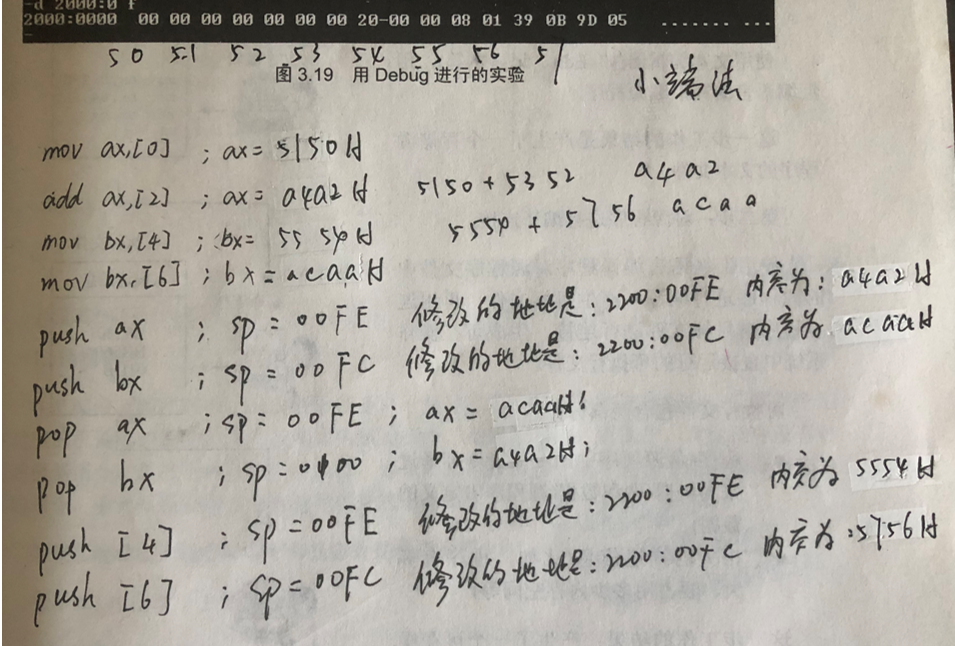 -d 2000:0 f
2000:0000 00 00 00 00 00 00 00 20-00 00 08 01 39 0B 9D 05 ....... ...
-
50 51 52 53 54 55 56 57
图 3.19 用 Debug 进行的实验
小端法
mov ax,[0] ; ax = 5150H
add ax,[2] ; ax = a4a2H 5150 + 5352 a4a2
mov bx,[4] ; bx = 5554H 5554 + 5756 acaa
mov bx,[6] ; bx = acaaH
push ax ; sp = 00FE 修改的地址是:2200:00FE 内容为:a4a2H
push bx ; sp = 00FC 修改的地址是:2200:00FC 内容为 acaaH
pop ax ; sp = 00FE ; ax = acaaH;
pop bx ; sp = 0100 ; bx = a4a2H;
push [4] ; sp = 00FE 修改的地址是:2200:00FE 内容为 5554H
push [6] ; sp = 00FC 修改的地址是:2200:00FC 内容为:5756H